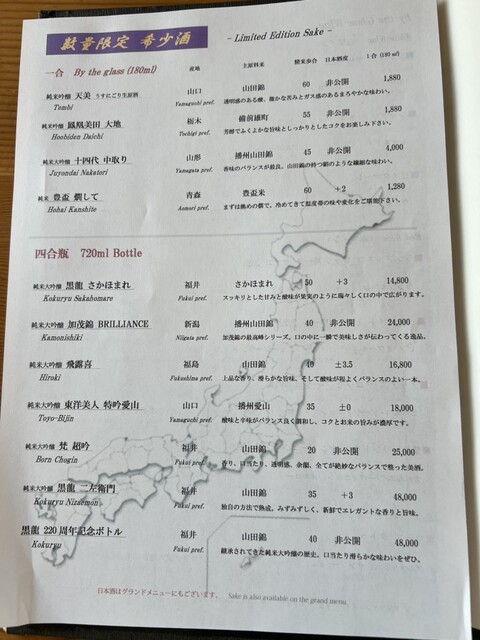 数量限定 希少酒 - Limited Edition Sake -
一合 By the glass (180ml) 産地 主原料米 精米歩合 日本酒度 1合 (180㎖)
純米吟醸 天美 うすにごり生原酒 山口 山田錦 60 非公開 1,880
Tembi Yamaguchi pref. 透明感のある酸、微かな苦みとガス感のあるまろやかな味わい。
純米吟醸 鳳凰美田 大地 栃木 備前雄町 55 非公開 1,880
Hoobiden Daichi Tochigi pref. 芳醇でふくよかな旨味としっかりとしたコクをお楽しみ下さい。
純米大吟醸 十四代 中取り 山形 播州山田錦 45 非公開 4,000
Juyondai Nakatori Yamagata pref. 香味のバランスが最良。山田錦の持つ絹のような繊細な味わい。
純米 豊盃 燗して 青森 豊盃米 60 +2 1,280
Hohai Kanshite Aomori pref. まずは熱めの燗で。冷めてきて温度帯の味や変化をご堪能下さい。
四合瓶 720ml Bottle
純米大吟醸 黒龍 さかほまれ 福井 さかほまれ 50 +3 14,800
Kokuryu Sakahomare Fukui pref. スッキリとした甘みと酸味が果実のように瑞々しく口の中で広がります。
純米大吟醸 加茂錦 BRILLIANCE 新潟 播州山田錦 40 非公開 24,000
Kamonishiki Niigata pref. 加茂錦の最高峰シリーズ。口の中に一瞬で美味しさが伝わってくる逸品。
純米大吟醸 飛露喜 福島 山田錦 40 ±3.5 16,800
Hiroki Fukushima pref. 上品な香り、滑らかな旨味、そして酸味が程よくバランスのよい一本。
純米大吟醸 東洋美人 特吟愛山 山口 播州愛山 35 ±0 18,000
Toyo-Bijin Yamaguchi pref. 酸味と辛味がバランス良く調和し、コクとお米の旨みが濃厚です。
純米大吟醸 梵 超吟 福井 山田錦 20 非公開 25,000
Born Chogin Fukui pref. 香り、口当たり、透明感、余韻、全てが絶妙なバランスで整った美酒。
純米大吟醸 黒龍 二左衛門 福井 山田錦 35 +3 48,000
Kokuryu Nizaemon Fukui pref. 独自の方法で熟成。みずみずしく、新鮮でエレガントな香りと旨味。
黒龍 220周年記念ボトル 福井 山田錦 40 非公開 48,000
Kokuryu Fukui pref. 継承されてきた純米大吟醸の歴史。口当たり滑らかな味わいをぜひ。
日本酒はグランドメニューにもございます。 Sake is also available on the grand menu